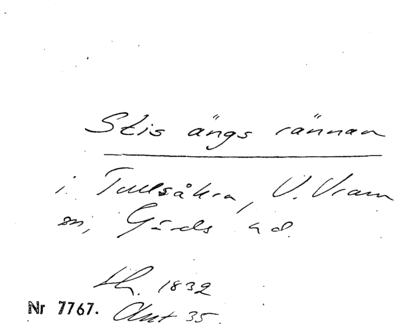 Stis ängs rännan
i Tullsåkra, V. Vram
sn, Gärds hd.
Lh. 1832
Nr 7767. Akt 35.